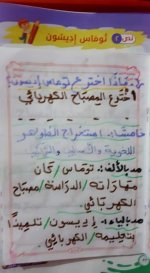 نص ٢ توماس إديسون
ماذا اخترع توماس إديسون؟
اخترع المصباح الكهربائي
خامسًا: استخراج الظواهر
اللغوية والأساليب والتراكيب
مد بالألف: توماس / كان
مهاراته / الدراسة / مصباح
الكهربائي
مد بالياء: إديسون / تلميذًا
بتعليمه / الكهربائي